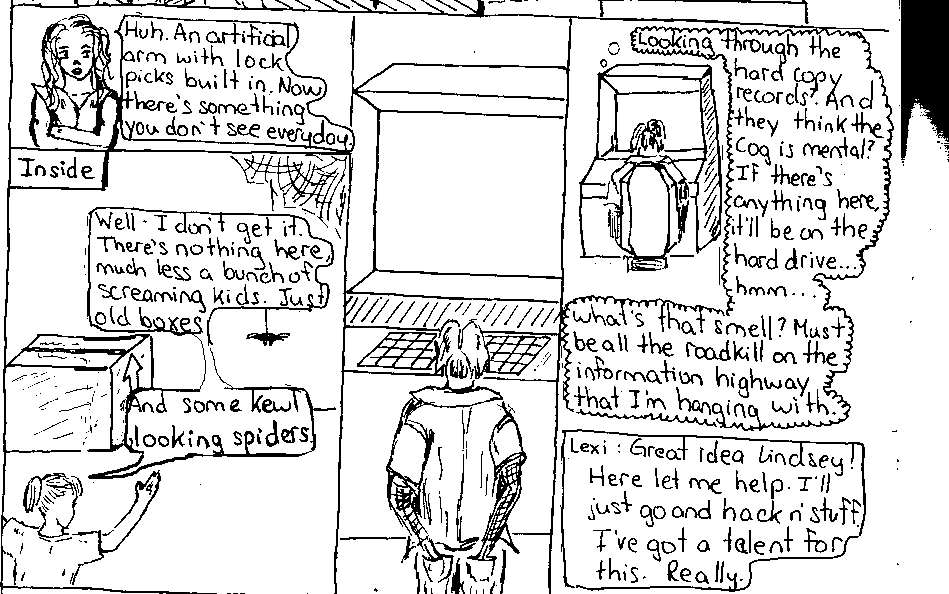 Huh. An artificial
arm with lock
picks built in. Now
there's something
you don't see everyday.
Inside
Well. I don't get it.
There's nothing here
much less a bunch of
screaming kids. Just
old boxes
And some kewl
looking spiders.
Looking through the
hard copy
records? And
they think the
Cog is mental?
If there's
anything here,
it'll be on the
hard drive...
hmm...
What's that smell? Must
be all the roadkill on the
information highway
that I'm hanging with.
Lexi: Great idea Lindsey!
Here let me help. I'll
just go and hack n' stuff
I've got a talent for
this. Really.